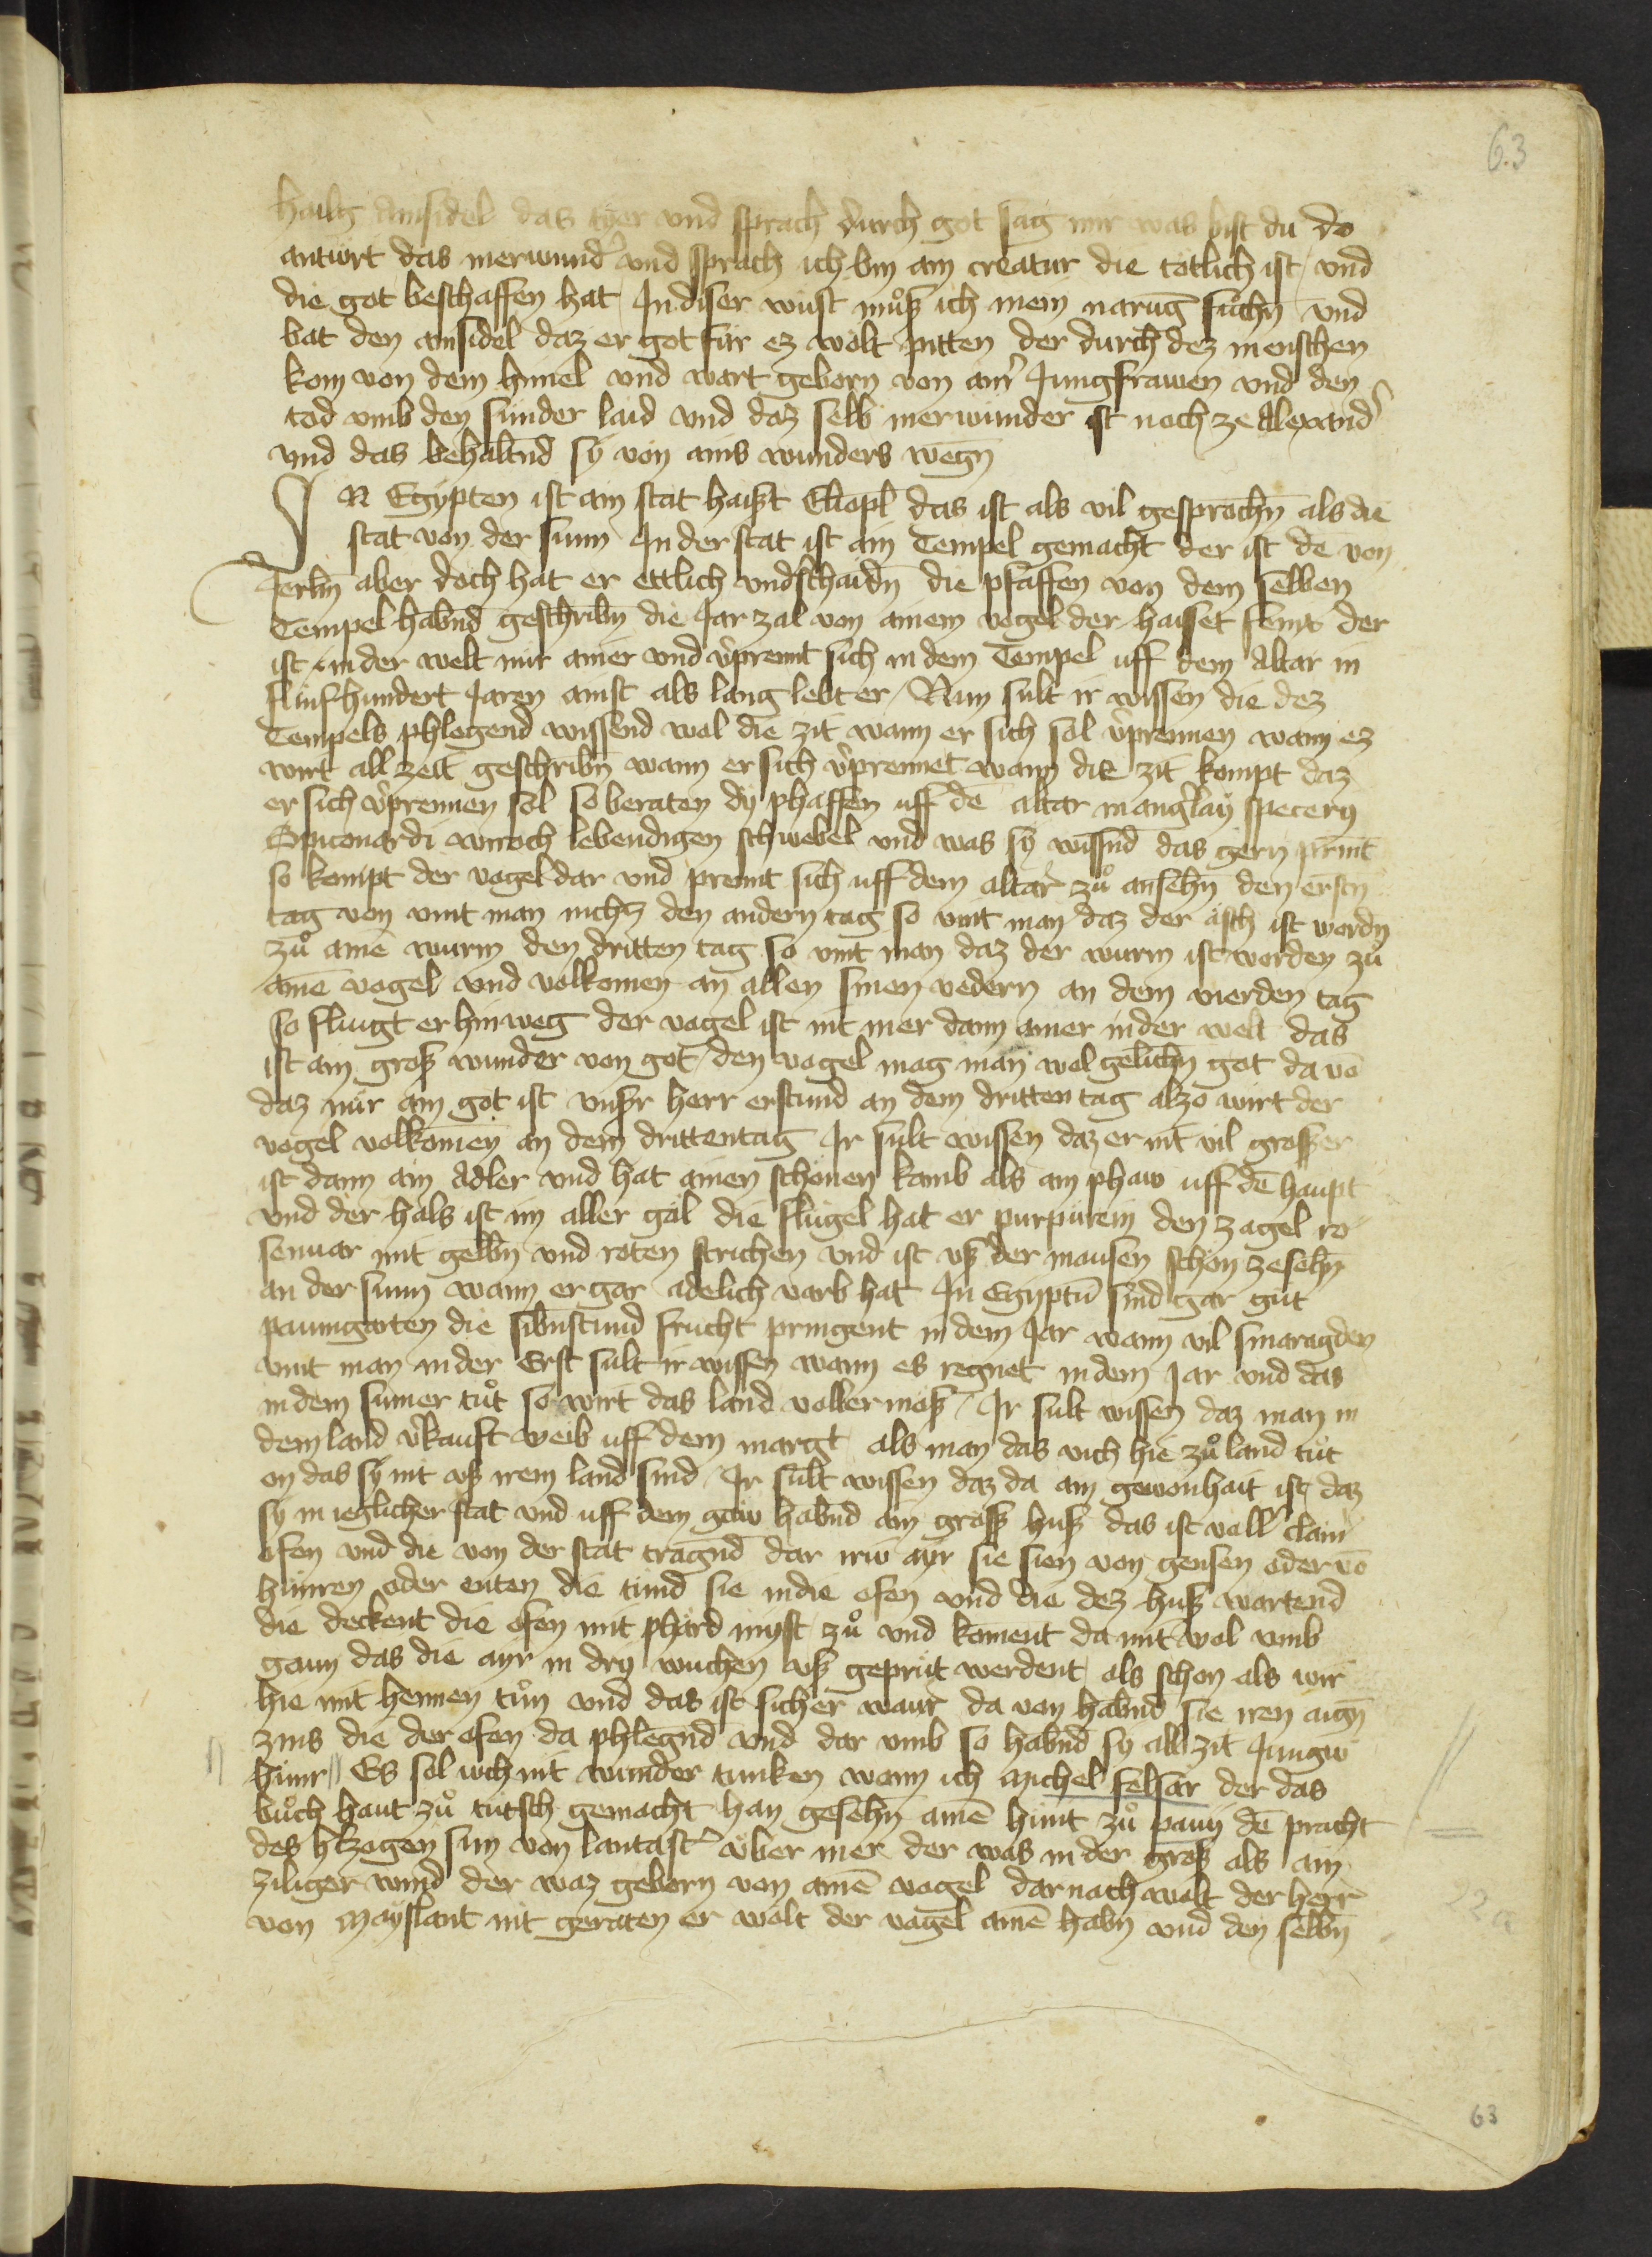 63
hailg ainsidel das tyer vnd sprach durch got sag mir was bist du do
antwrt das merwundˀ vnd sprach ich bin ain creatur die totlich ist / vnd
die got beschaffen hat / In diser wüst mů̊ß ich mein narūg sůchn̄ vnd
bat den ainsidel daz er got für ez wölt pitten der durch dez menschen
kom von dem himel vnd wart geborn von ainˀ Jungfrawen vnd den
tod vmb den sünder laid vnd daz selb merwunder ist noch ze Alexandˀ
vnd das behaltnd sÿ von ains wunders wegn̄
IN Egypten ist ain stat haißt Eliopl̄ das ist als vil gesprochn̄ als die
stat von der sunn In der stat ist ain Tempel gemacht der ist dē von
Jerlm̄ aber doch hat er ettlich vndschaidn̄ die pfaffen von dem selben
Tempel habnd geschribn̄ die Jar zal von ainem vogel der haisset fenix der
ist in der welt nur ainer vnd vˀprennt sich in dem Tempel uff dem Altar in
fünfhundert Jaren ainst als lang lebt er / Nun sult ir wissen die dez
Tempels phlegend wissend wol die zit wann er sich sol vˀprennen wann ez
wirt all zeit geschribn̄ wann er sich vˀprennet wann die zit kompt daz
er sich vˀprennen sol so beraten dÿ phaffen uff dē altar mangˀlaÿ specery
Spiconardi wiroch lebendigen schwebel vnd was sÿ wissnd das gern print
so kompt der vogel dar vnd prennt sich uff dem altar zů ansehn̄ den erstn̄
tag von vint man nichtz den andern tag so vint man daz der äsch ist wordn̄
zů ainē wurm den dritten tag so vint man daz der wurm ist worden zů
ainē vogel vnd volkomen an allen sinen vedern an dem vierden tag
so fluigt er hinweg der vogel ist nit mer dann ainer in der welt das
ist ain groß wunder von got / den vogel mag man wol gelichn̄ got da vō
daz nür ain got ist vnßr herr erstund an dem dritten tag alzo wirt der
vogel volkomen an dem dritten tag Ir sult wissen daz er nit vil grosser
ist dann ain Adler vnd hat ainen schönen kamb als ain phaw uff dē haupt
vnd der hals ist im aller gäl die flügel hat er purpurein den zagel ro
senuar mit gelbn̄ vnd roten strichen vnd ist vß der mausen schön ze sehn̄
an der sunn wann er gar adelich varb hat In Egyptū sind gar gut
paumgarten die sibnstund frucht pringent in dem Jar wann vil smaragden
vint man in der Erst sult ir wissen wann es regnet in dem Jar vnd das
in dem sumer tůt so wirt das land voller mois / Ir sult wissen daz man in
dem land vˀkauft weib uff dem margt als man das vich hie zů land tůt
on das sÿ nit vß irem land sind / Ir sult wissen daz da ain gewonhait ist daz
sÿ in ieglicher stat vnd uff dem gäw habnd ain groß huß das ist voll clainˀ
ofen vnd die von der stat tragnd dar irw ayr sie sien von gensen oder vō
hünren oder enten die tund sie in die ofen vnd die dez huß wartend
die deckent die ofen mit phärd myst zů vnd koment da mit wol vmb
gaun das die ayr in dry wuchen vß geprüt werdent als schon als wir
hie mit hennen tůn vnd das ist sicher waur da von habnd sie iren aign̄
zins die der ofen da phlegnd vnd dar vmb so habnd sÿ all zit Jungw
hünr // Es sol wch nit wunder tunken wann ich Michel felsar der das
bůch haut zů tütsch gemacht han gesehn̄ ainē hunt zů pauÿ dē pracht
des hˀtzogen sun von lantastˀ v̈ber mer der was in der groß als ain
ziliger wind der waz geborn von ainē vogel darnach wolt der herr
von Mayslant nit geraten er wölt der vogel ainē habn̄ vnd den selbn̄
22a
63